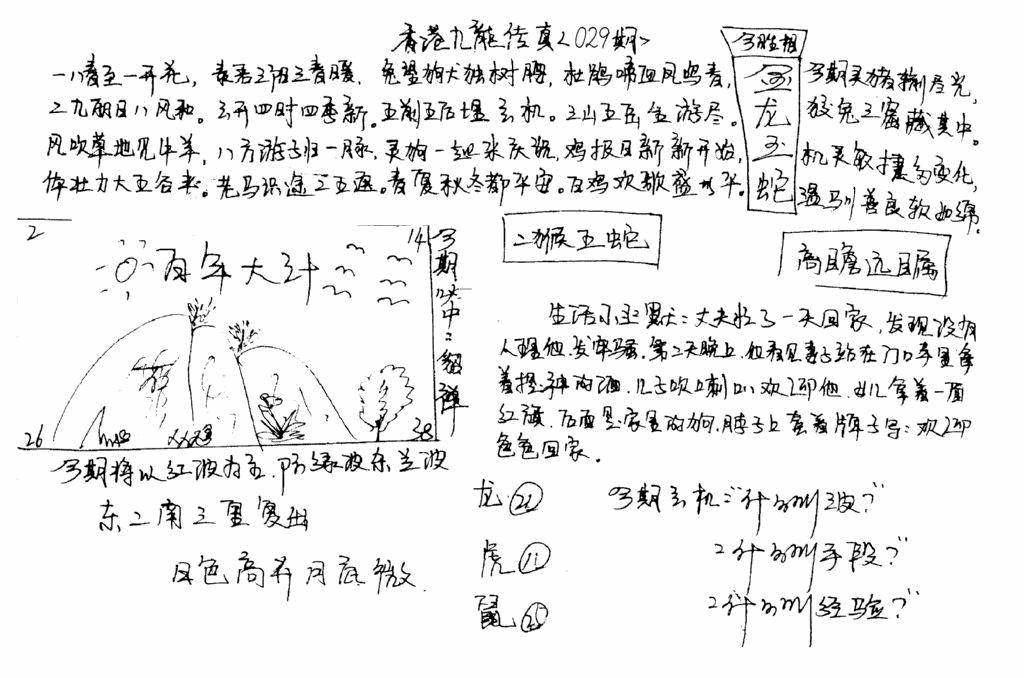 香港九龍传真<029期>
一八春至一开花，春君三阳三春暖，兔望狗犬独树腰，杜鹃啼血风鸟青，
二九朝日八风和。云开四时四季新。五前五后埋玄机。三山五岳全游尽。
风吹草地见牛羊，八方游子归一脉，灵狗一起来庆祝，鸡报日新新开始，
体壮力大五谷来。老马识途二五返。春夏秋冬都平安。百鸡欢歌盛太平。
今期灵猪捌尽光，
狡兔三窟藏其中。
机灵敏捷多变化，
温驯善良软如绵。
金龙玉蛇
二猴五蛇
高瞻远瞩
2
14
百年大计
26
38
今期必中：
今期将以红波为主，防绿波杀兰波
东二南三里复出
日色高升月底微
生活小幽默：丈夫忙了一天回家，发现没有
人理他，发牢骚，第二天晚上，他看见妻子站在门口手里拿
着提神的酒，儿子吹喇叭欢迎他，女儿拿着一面
红旗，后面是家里的狗，脖子上套着牌子写：欢迎
爸爸回家。
龙 22
虎 11
鼠 25
今期玄机：“什么叫三波？”
2什么叫手段？”
2什么叫经验？”